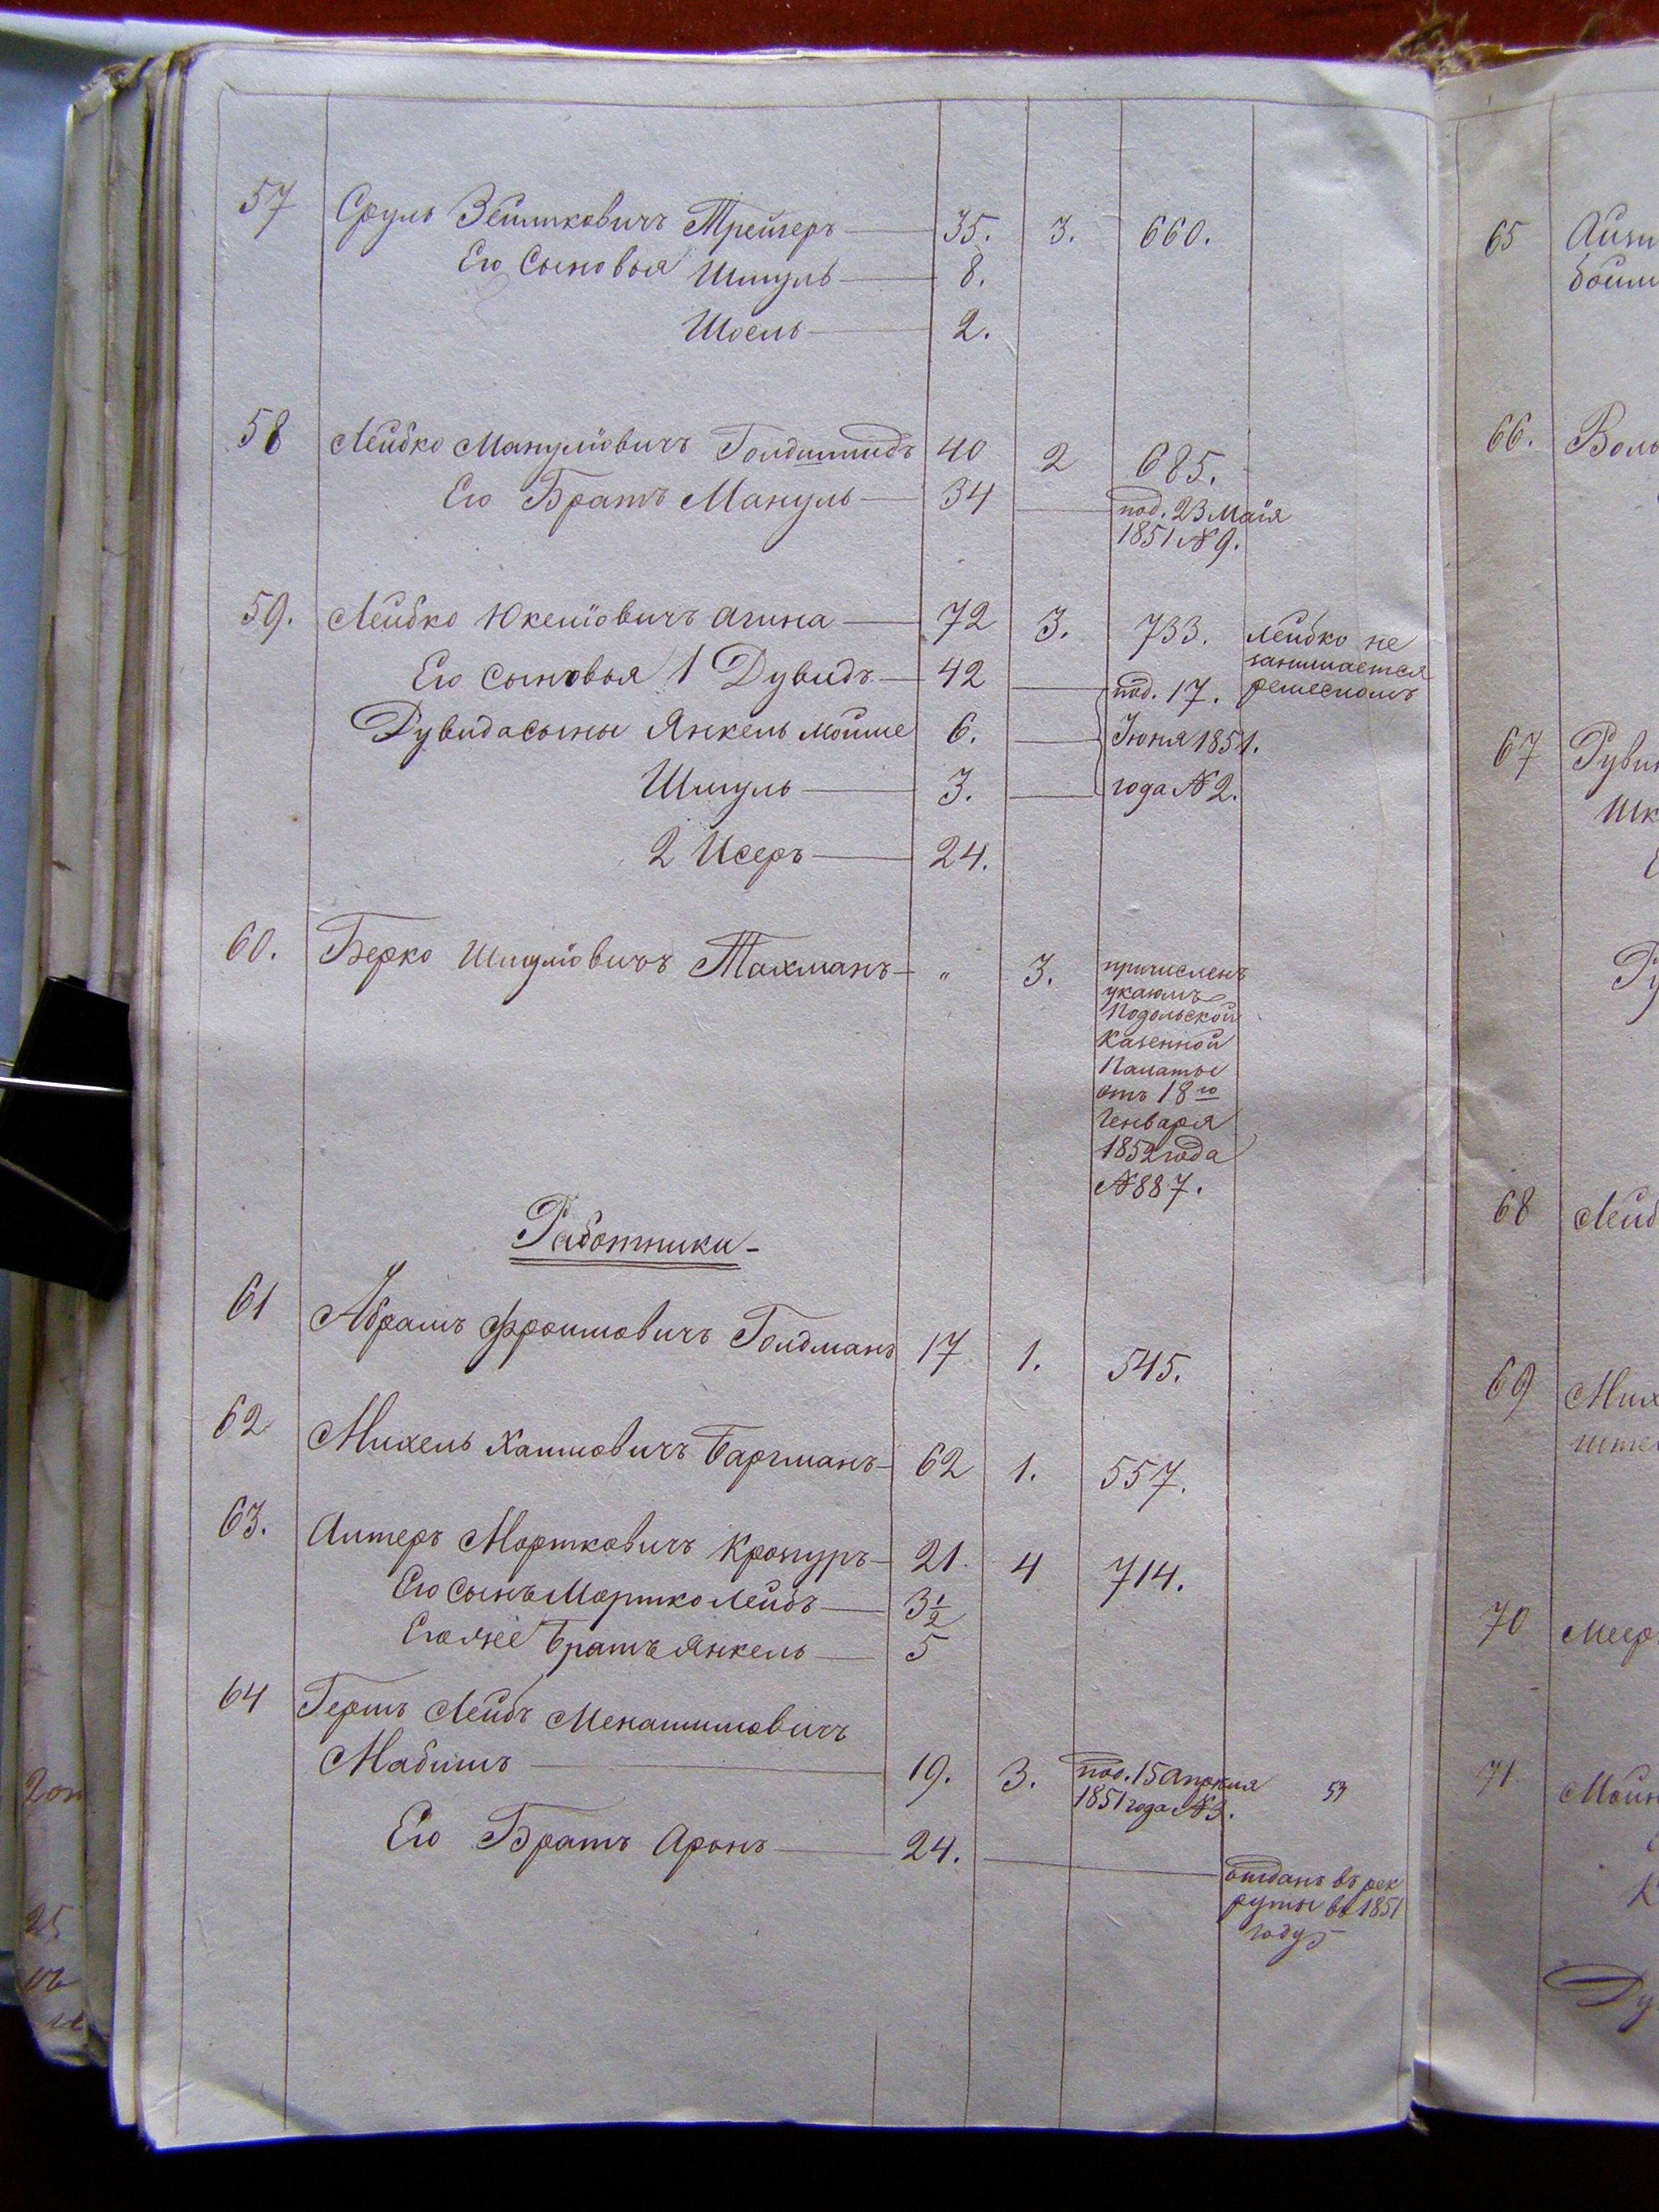 57 Сруль Зейликовичъ Трейгеръ 35. 3. 660.
Его Сыновья Шмуль 8.
Шоель 2.
58 Лейбко Мануліовичъ Голдшмидъ 40 2 685.
Его Братъ Мануль 34 под. 23 Маія
1851 № 9.
59. Лейбко Юкеліовичъ Агина 72 3. 733. Лейбко не
занимается
ремесломъ
Его сыновья 1 Дувидъ 42 под. 17.
Дувида сыны Янкель Мойше 6. Іюня 1851.
Шмуль 3. года № 2.
2 Исеръ 24.
60. Берко Шмуліовичъ Тахманъ „ 3. причисленъ
указомъ
Подольской
Казенной
Палаты
отъ 18го
Генваря
1852 года
№ 887.
Работники
61 Абрамъ Фроимовичъ Голдманъ 17 1. 545.
62 Михель Хаимовичъ Баргманъ 62 1. 557.
63. Алтеръ Мортковичъ 21. 4 714.
Его Сынъ Мортко Лейбъ 3½
Его же Братъ Янкель 5
64 Гершъ Лейбъ Менашшовичъ
Мабишъ 19. 3. под. 15 Апреля
1851 года № 3.
53
Его Братъ Аронъ 24.
отданъ въ рек
руты въ 1851
году
65
66. Воль
67 Руви
68 Лейб
69 Мих
70 Меер
71.
25